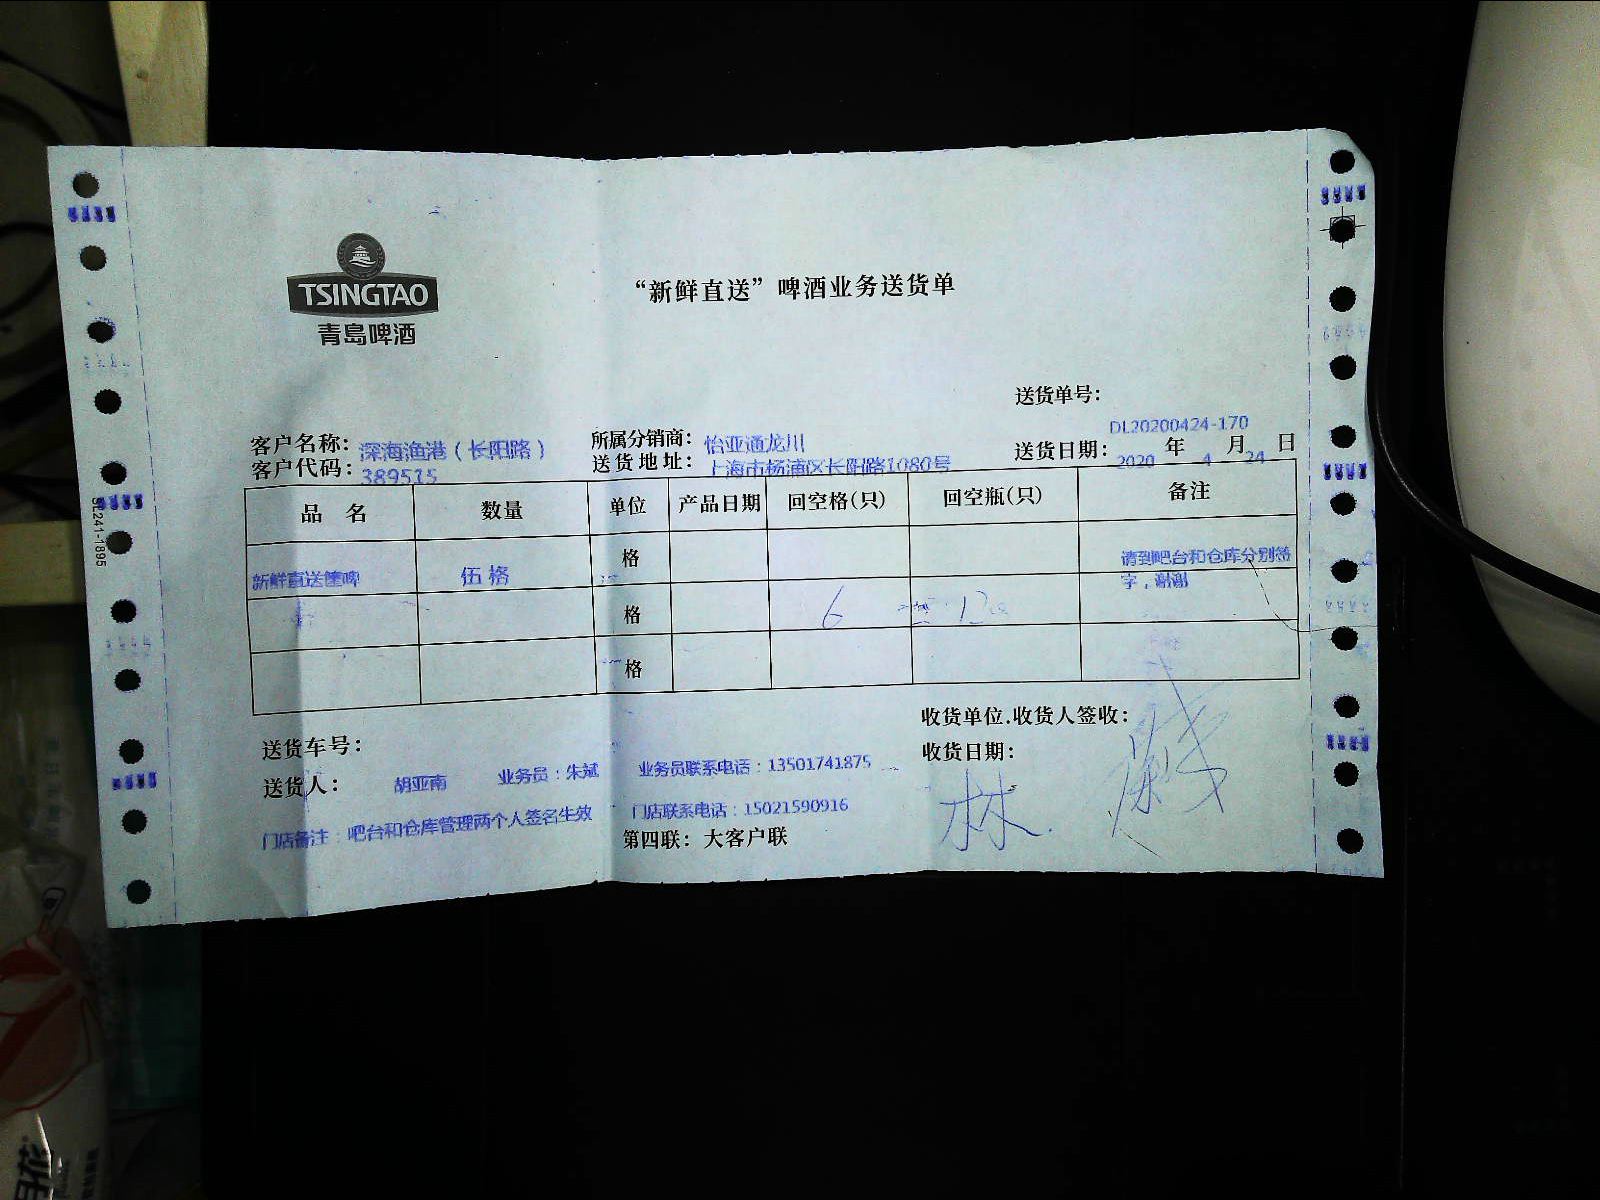 TSINGTAO
青島啤酒
“新鲜直送”啤酒业务送货单
送货单号：
DL20200424-170
客户名称：深海渔港（长阳路） 所属分销商：怡亚通龙川 送货日期：2020 年 4 月 24 日
客户代码：389515 送货地址：上海市杨浦区长阳路1080号
品 名 数量 单位 产品日期 回空格(只) 回空瓶(只) 备注
新鲜直送篓啤 伍格 格 请到吧台和仓库分别签
字，谢谢
格 6 120
格
收货单位.收货人签收：
送货车号： 收货日期：
送货人： 胡亚南 业务员：朱斌 业务员联系电话：13501741875
林
门店备注：吧台和仓库管理两个人签名生效 门店联系电话：15021590916
第四联：大客户联
SL241-1895